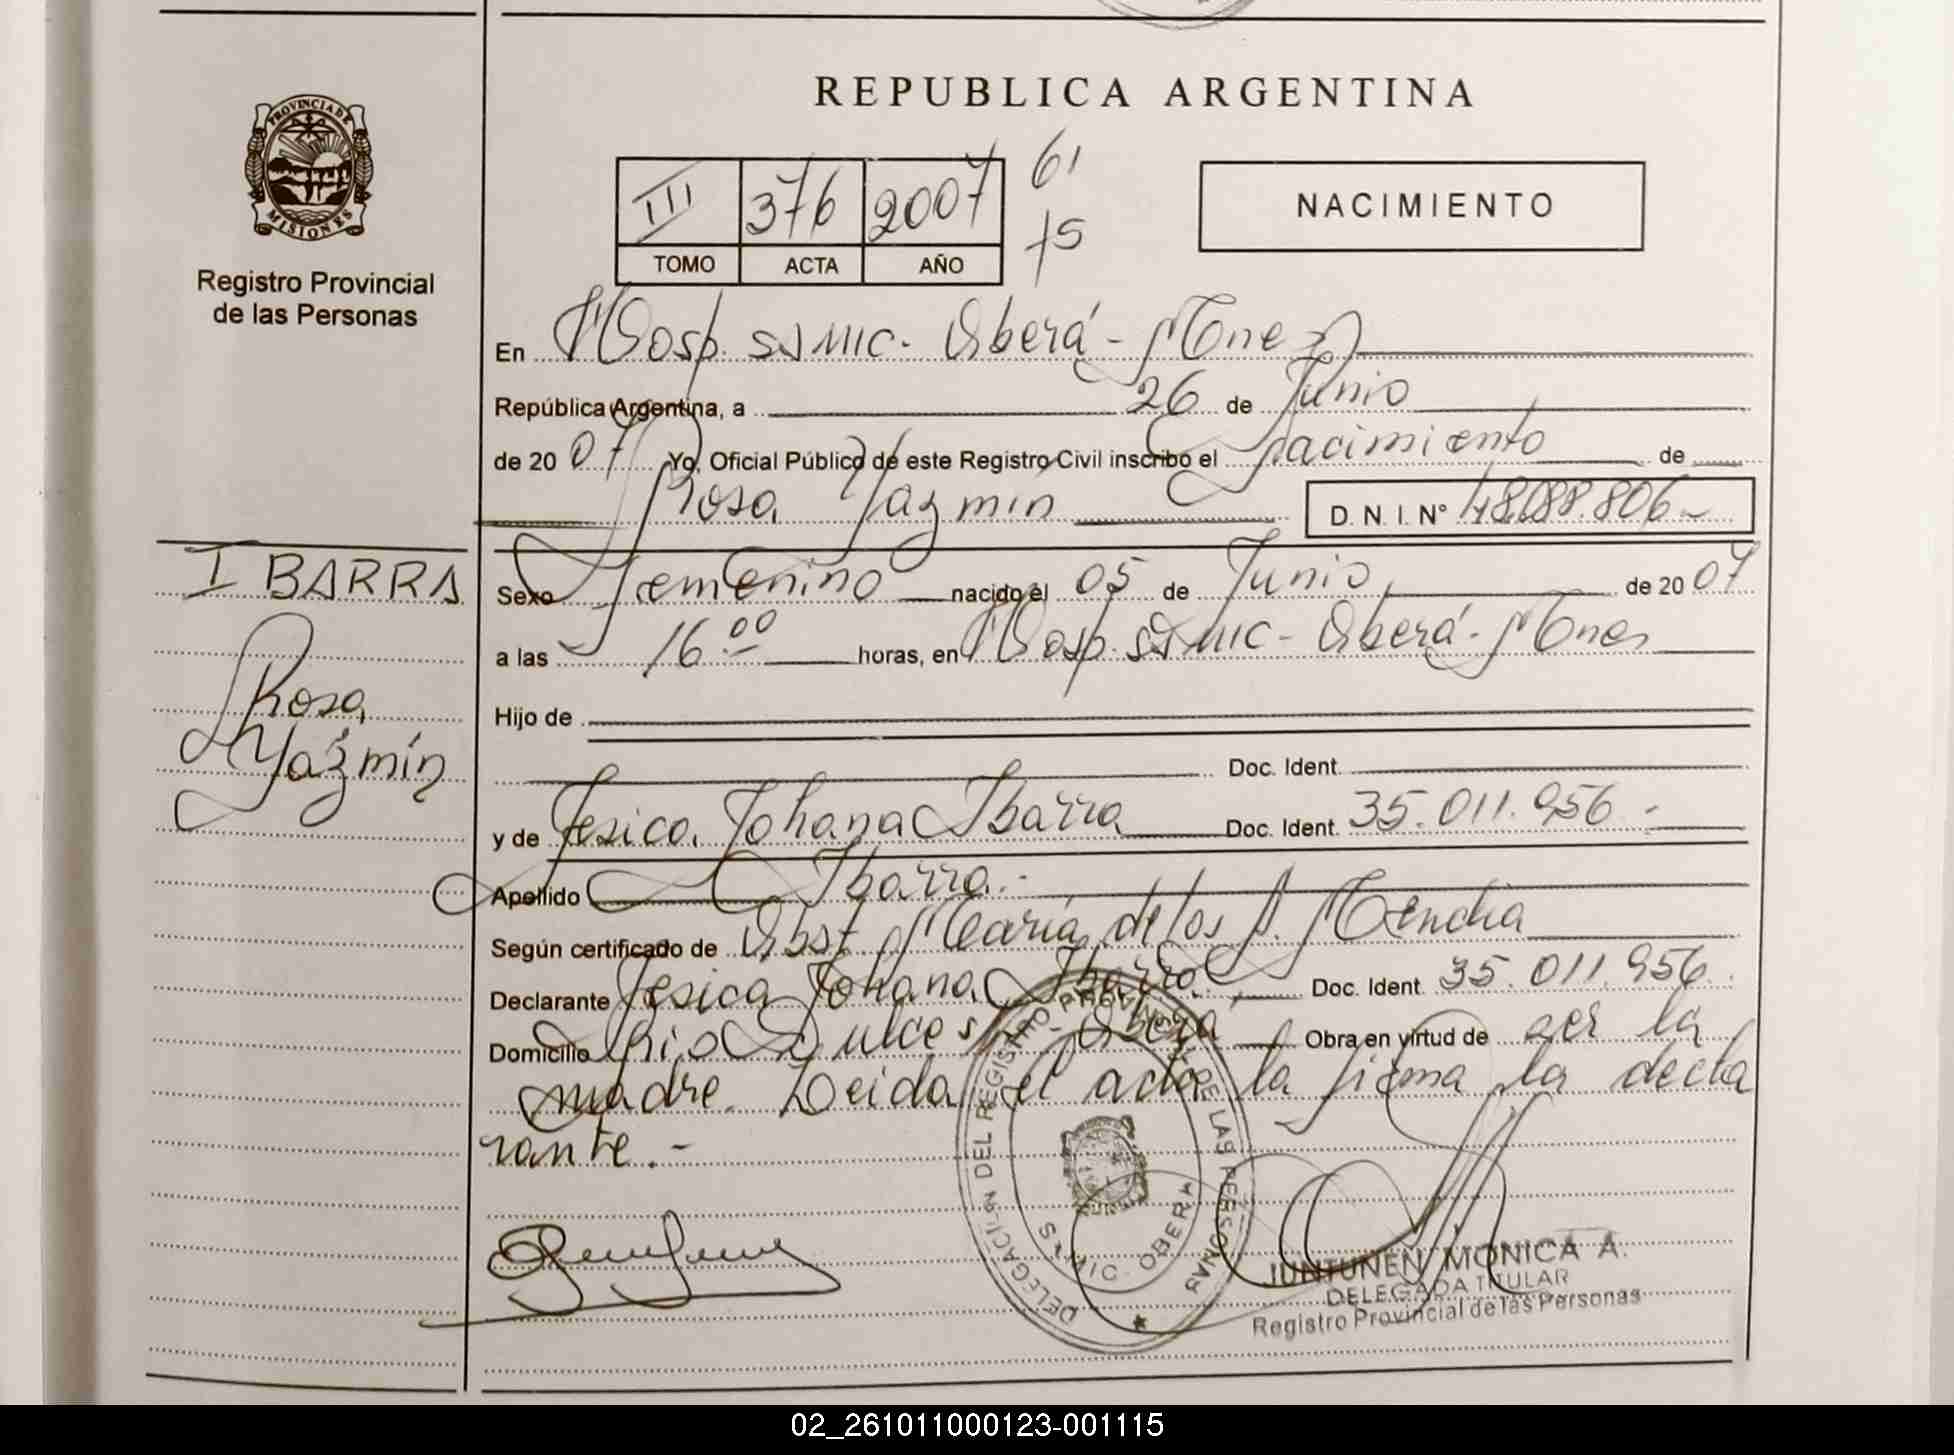 PROVINCIA DE
MISIONES
Registro Provincial
de las Personas
REPUBLICA ARGENTINA
III 376 2007 61
75
TOMO ACTA AÑO
NACIMIENTO
En Hosp. SAMIC. Oberá - Mnes
República Argentina, a 26 de Junio
de 20 07 Yo, Oficial Público de este Registro Civil inscribo el nacimiento de
Rosa Yazmin D.N.I. Nº 48.088.806
IBARRA
Rosa
Yazmín
Sexo Femenino nacido el 05 de Junio de 20 07
a las 16 00 horas, en Hosp. SAMIC - Oberá - Mnes
Hijo de
Doc. Ident.
y de Jesica Johana Ibarra Doc. Ident. 35.011.956.-
Apellido Ibarra.-
Según certificado de Obst. María de los A. Mendia
Declarante Jesica Johana Ibarra Doc. Ident. 35.011.956.
Domicilio Río Dulce s/ - Oberá Obra en virtud de ser la
madre. Leida el acta la firma la decla
rante.-
DELEGACION DEL REGISTRO PROVINCIAL DE LAS PERSONAS
MNES VIC. OBERA
JUNTUNEN MONICA A.
DELEGADA TITULAR
Registro Provincial de las Personas
02_261011000123-001115